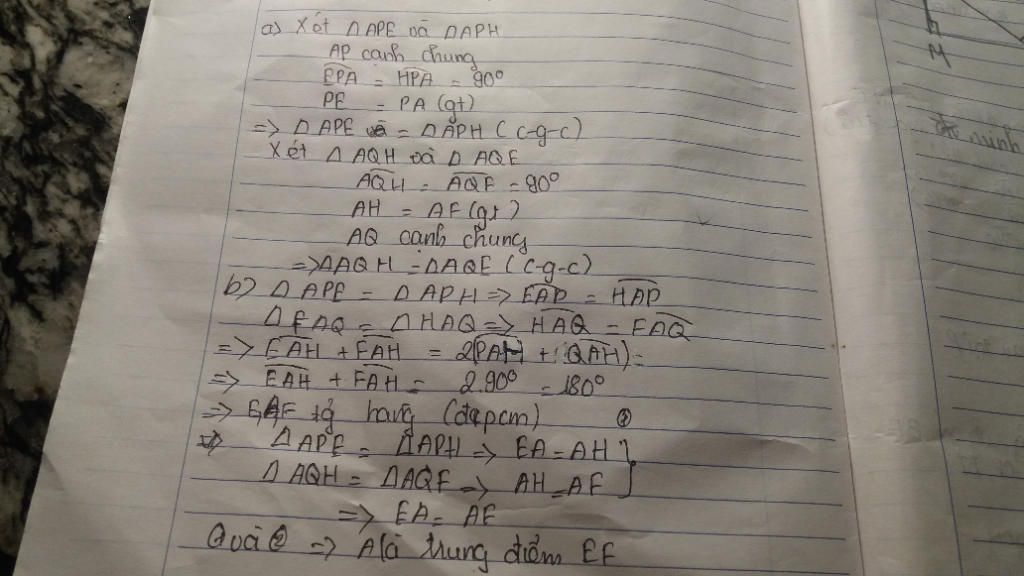 a) Xét ΔAPE và ΔAPH
AP cạnh chung
EPA = HPA = 90°
PE = PA (gt)
=> ΔAPE = ΔAPH (c-g-c)
Xét ΔAQH và ΔAQE
AQH = AQF = 90°
AH = AF (gt)
AQ cạnh chung
=> ΔAQH = ΔAQE (c-g-c)
b) ΔAPE = ΔAPH => EAP = HAP
ΔFAQ = ΔHAQ => HAQ = FAQ
=> EAH + FAH = 2(PAH + QAH) =
=> EAH + FAH = 2.90° = 180°
=> E,A,F hang (đpcm)
=> ΔAPE = ΔAPH => EA = AH
ΔAQH = ΔAQF => AH = AF
=> EA = AF
=> A là trung điểm EF
M
minh